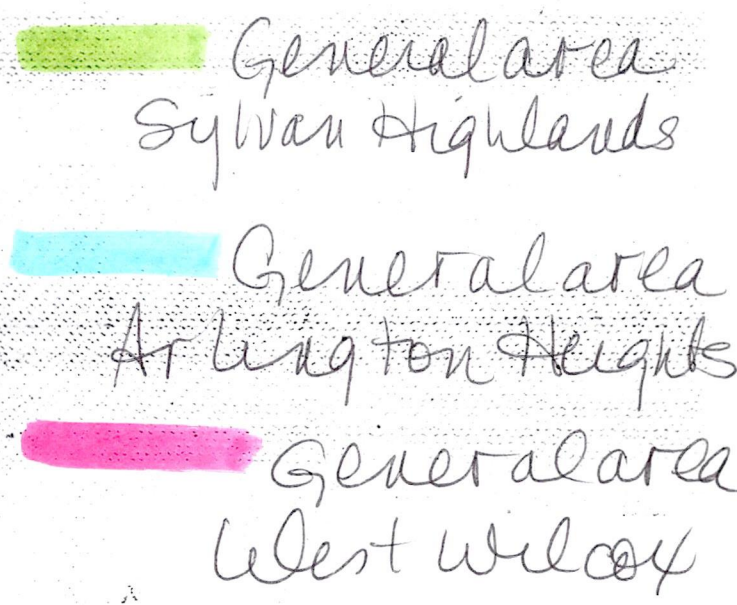 General area
Sylvan Highlands
General area
Arlington Heights
General area
West Wilcox